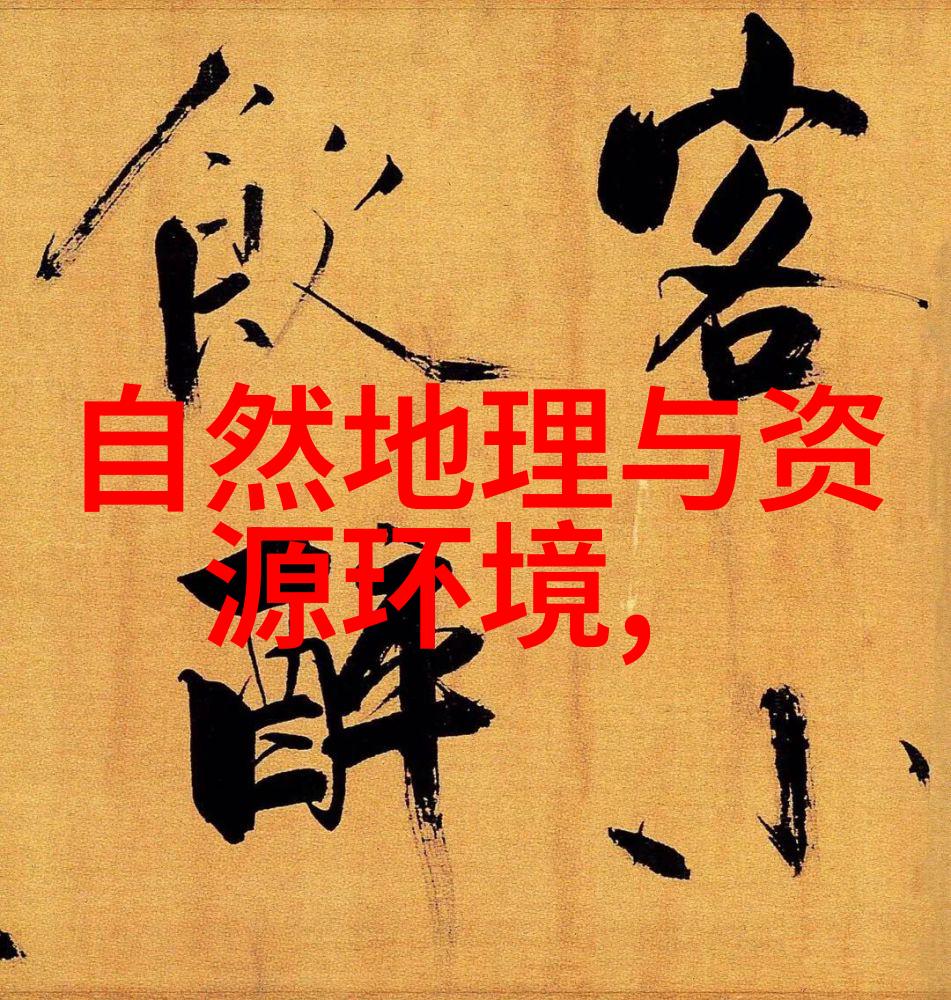 自然地理与资
源环境,
客小
飲醉